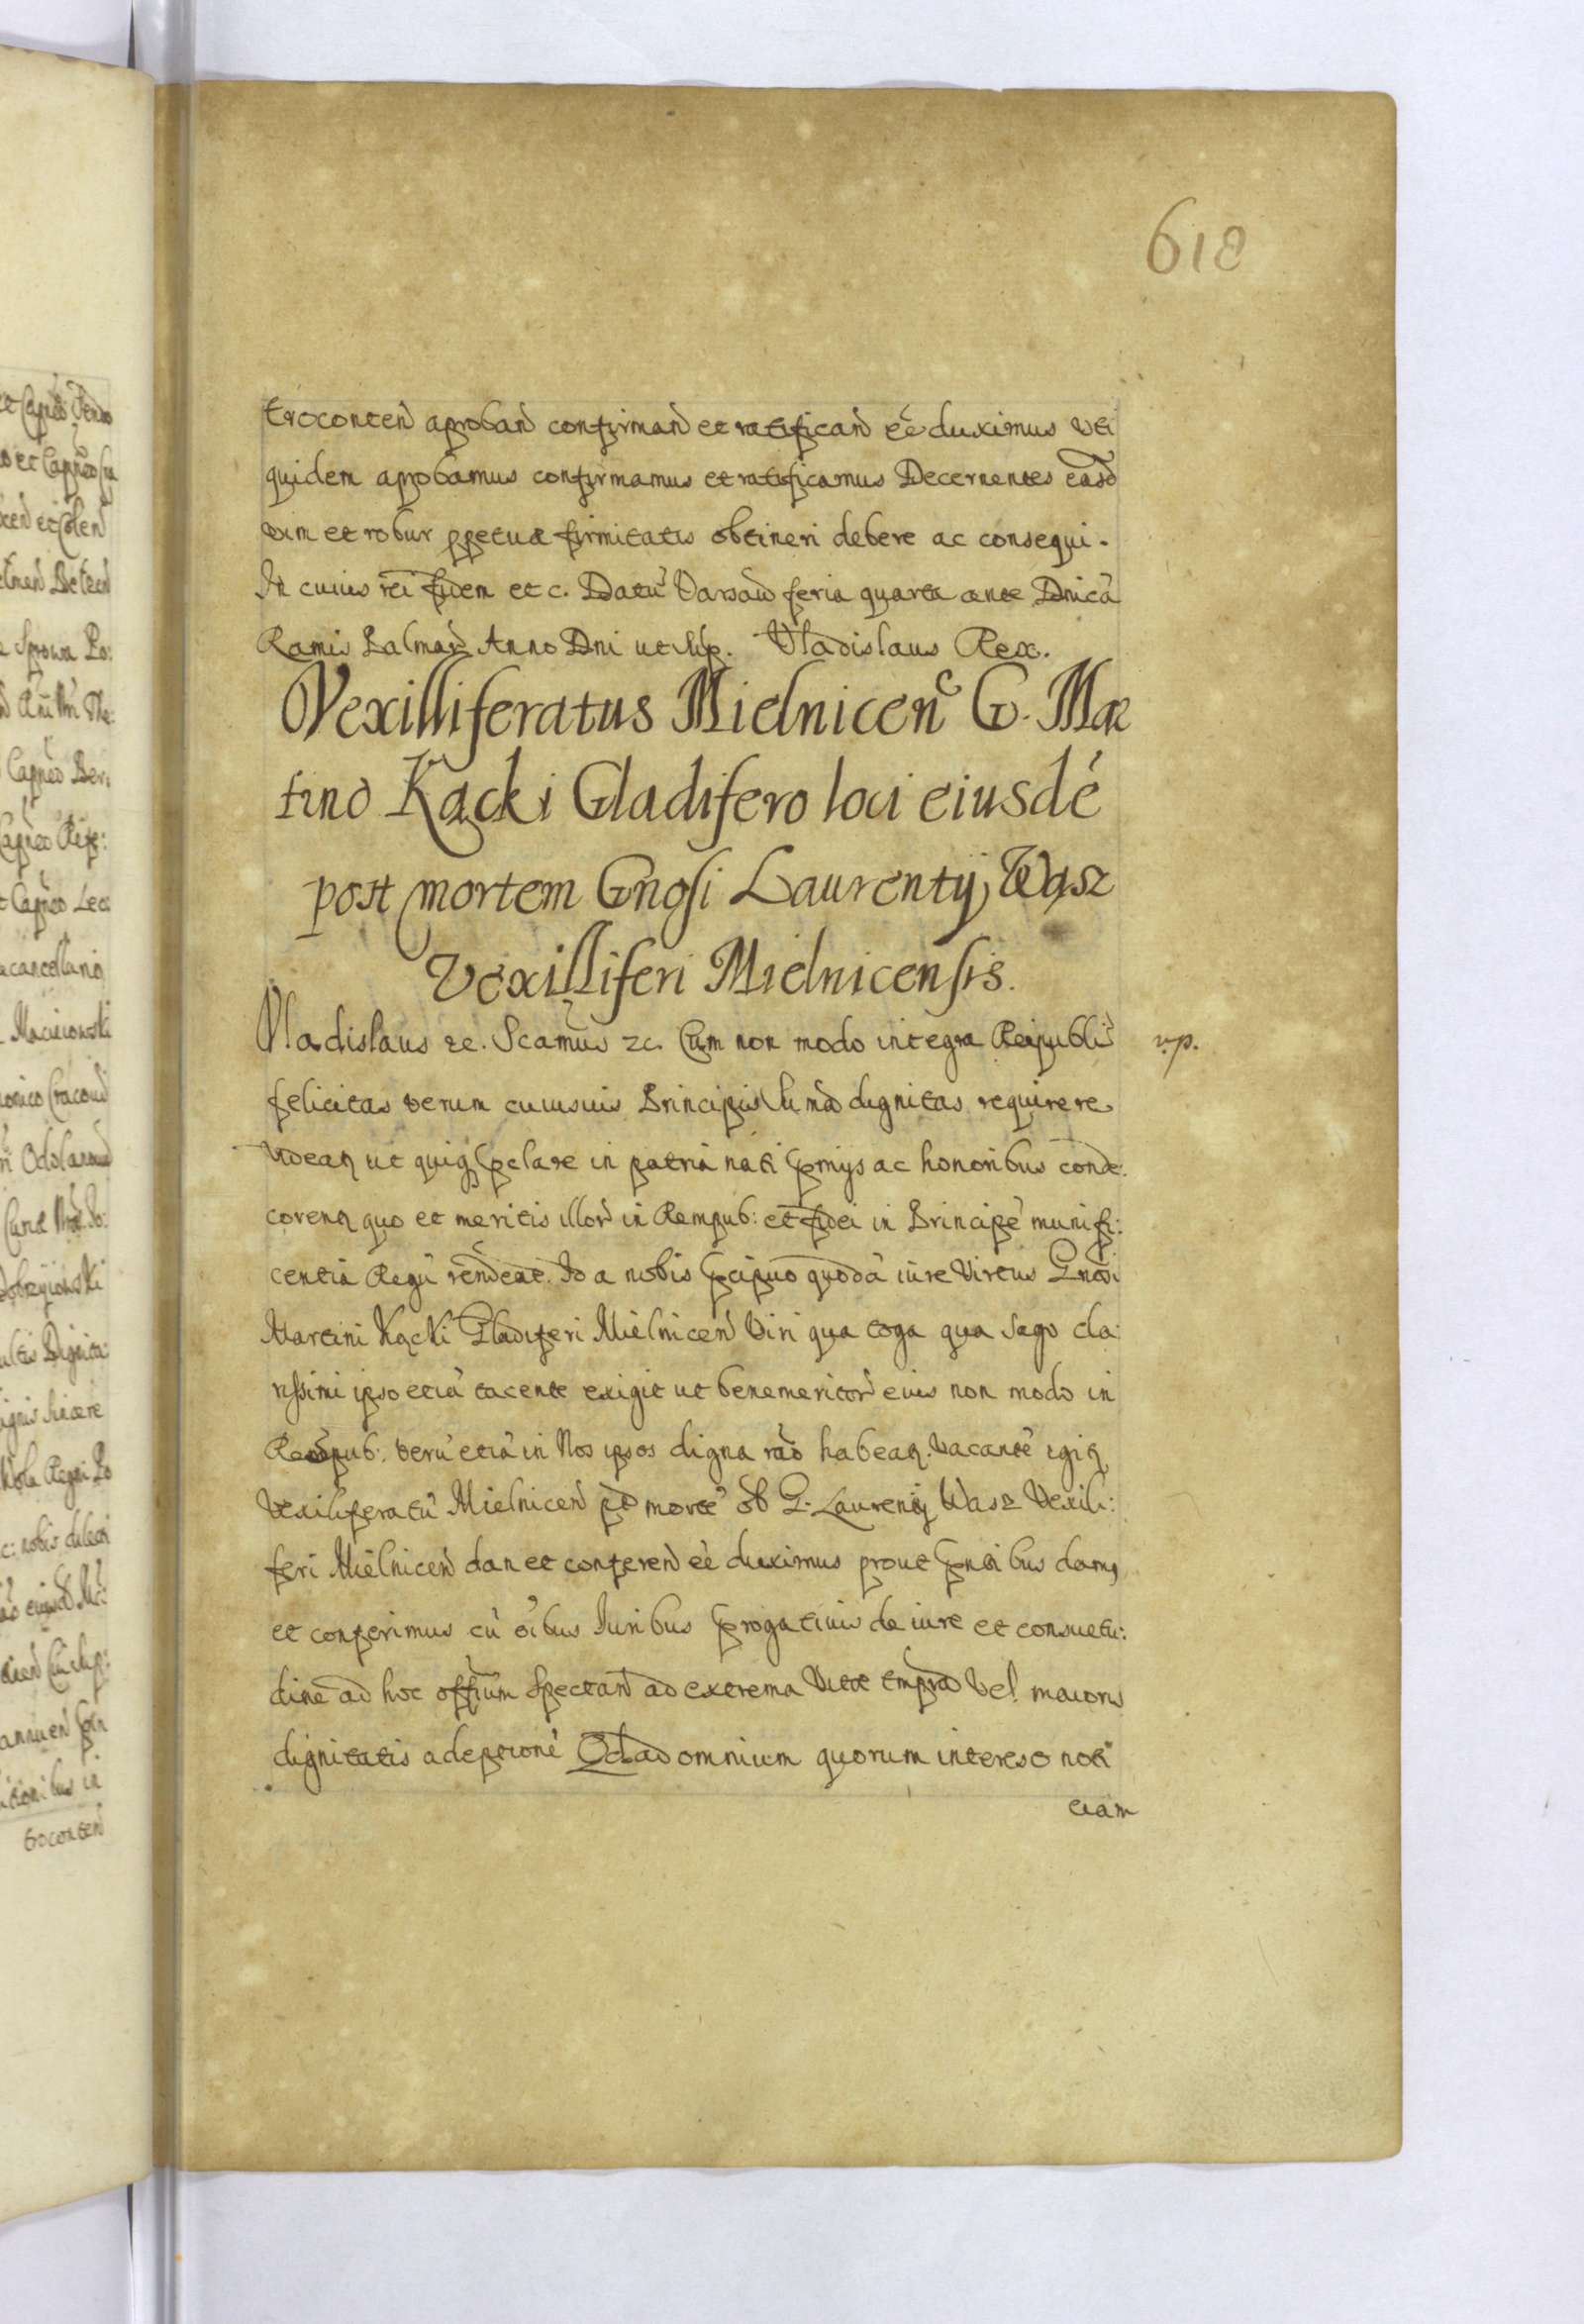 618
troconten aproban confirman et ratifican eē duximus Uti
quidem aprobamus confirmamus et ratificamus Decernentes easd
vim et robur ppetuæ firmitatis obtineri debere ac consequi.
In cuius rei fidem et c. Datū Varsav feria quarta ante Dnicā
Ramis Palmar Anno Dni ut sup. Vladislaus Rex.
Vexilliferatus Mielnicen G. Mar
tino Kącki Gladifero loci eiusdē
post mortem Gnosi Laurentij Wąsz
Vexilliferi Mielnicensis.
Vladislaus etc. Scamus etc. Cum non modo integra Reipubli
felicitas verum cuiusvis Principis summa dignitas requirere
videat ut quiq pclare in patria nati pmijs ac honoribus conde:
corent quo et meritis illor in Rempub: et fidei in Principē munifi:
centia Regū rendeat. Id a nobis pcipuo quodā iure Virtus Gnosi
Martini Kącki Gladiferi Mielnicen Viri qua toga qua sago cla:
rissimi ipso etiā tacente exigit ut benemeritor eius non modo in
Rempub: verū etiā in Nos ipsos digna rāo habeat. Vacantē igit
Vexiliferatū Mielnicen pt mortē ol G. Laurentij Wąsz Vexili:
feri Mielnicen dan et conferen eē duximus prout pntibus dam9
et conferimus cū oībus Iuribus prōgativis de iure et consuetu:
dine ad hoc offium spectan ad extrema vitæ tmpra vel maioris
dignitatis adeptionē Qd ad omnium quorum interest noti
ciam
vp.